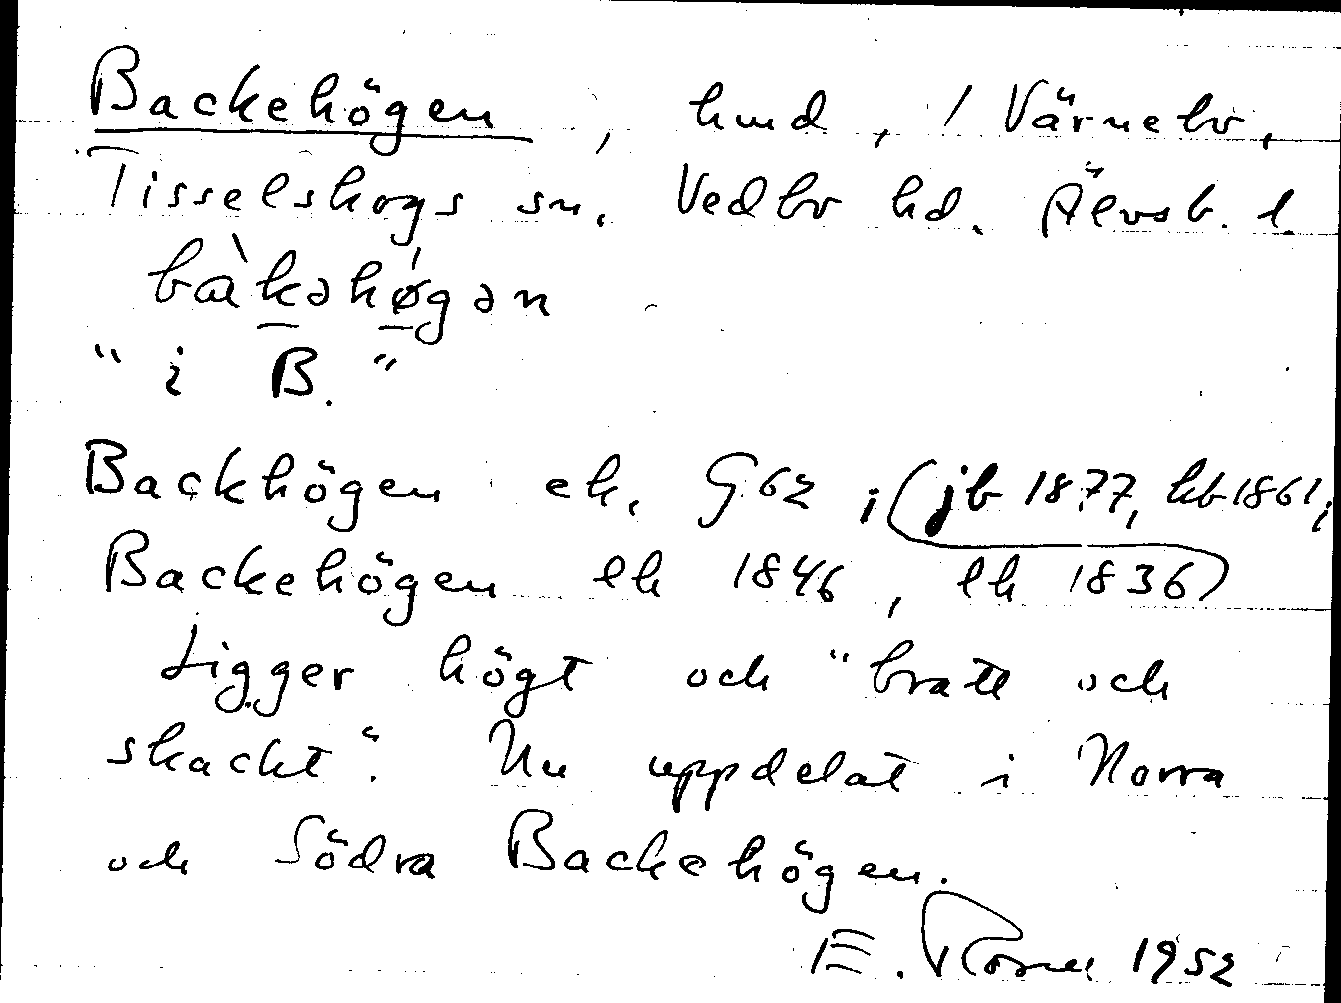 Backehögen, hmd, / Värnebo,
Tisselskogs sn. Vedbo hd. Älvsb. l.
bàkəhǿgən
"i B."
Backhögen ek. G 62; (jb 1877, kb 1861;
Backehögen lk 1846, lk 1836)
Ligger högt och "bratt och
skackt". Nu uppdelat i Norra
och Södra Backehögen.
E. 1952